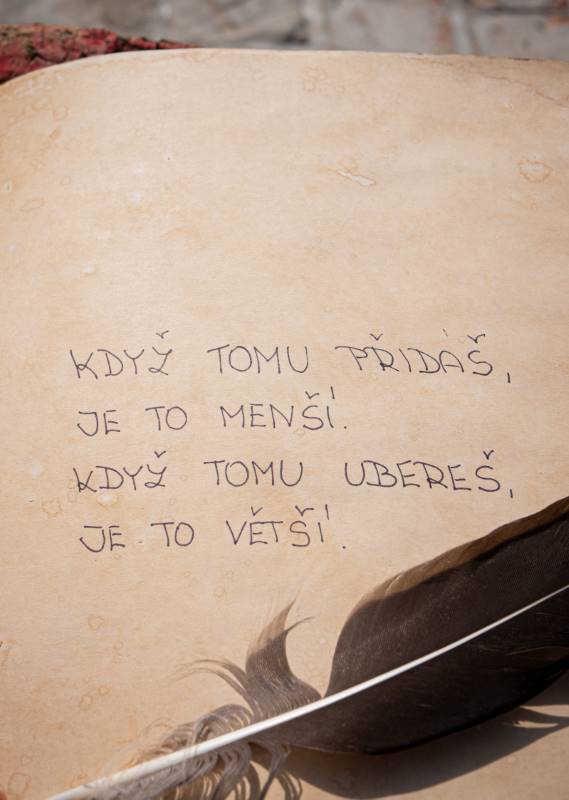 KDYŽ TOMU PŘIDÁŠ,
JE TO MENŠÍ.
KDYŽ TOMU UBEREŠ,
JE TO VĚTŠÍ.